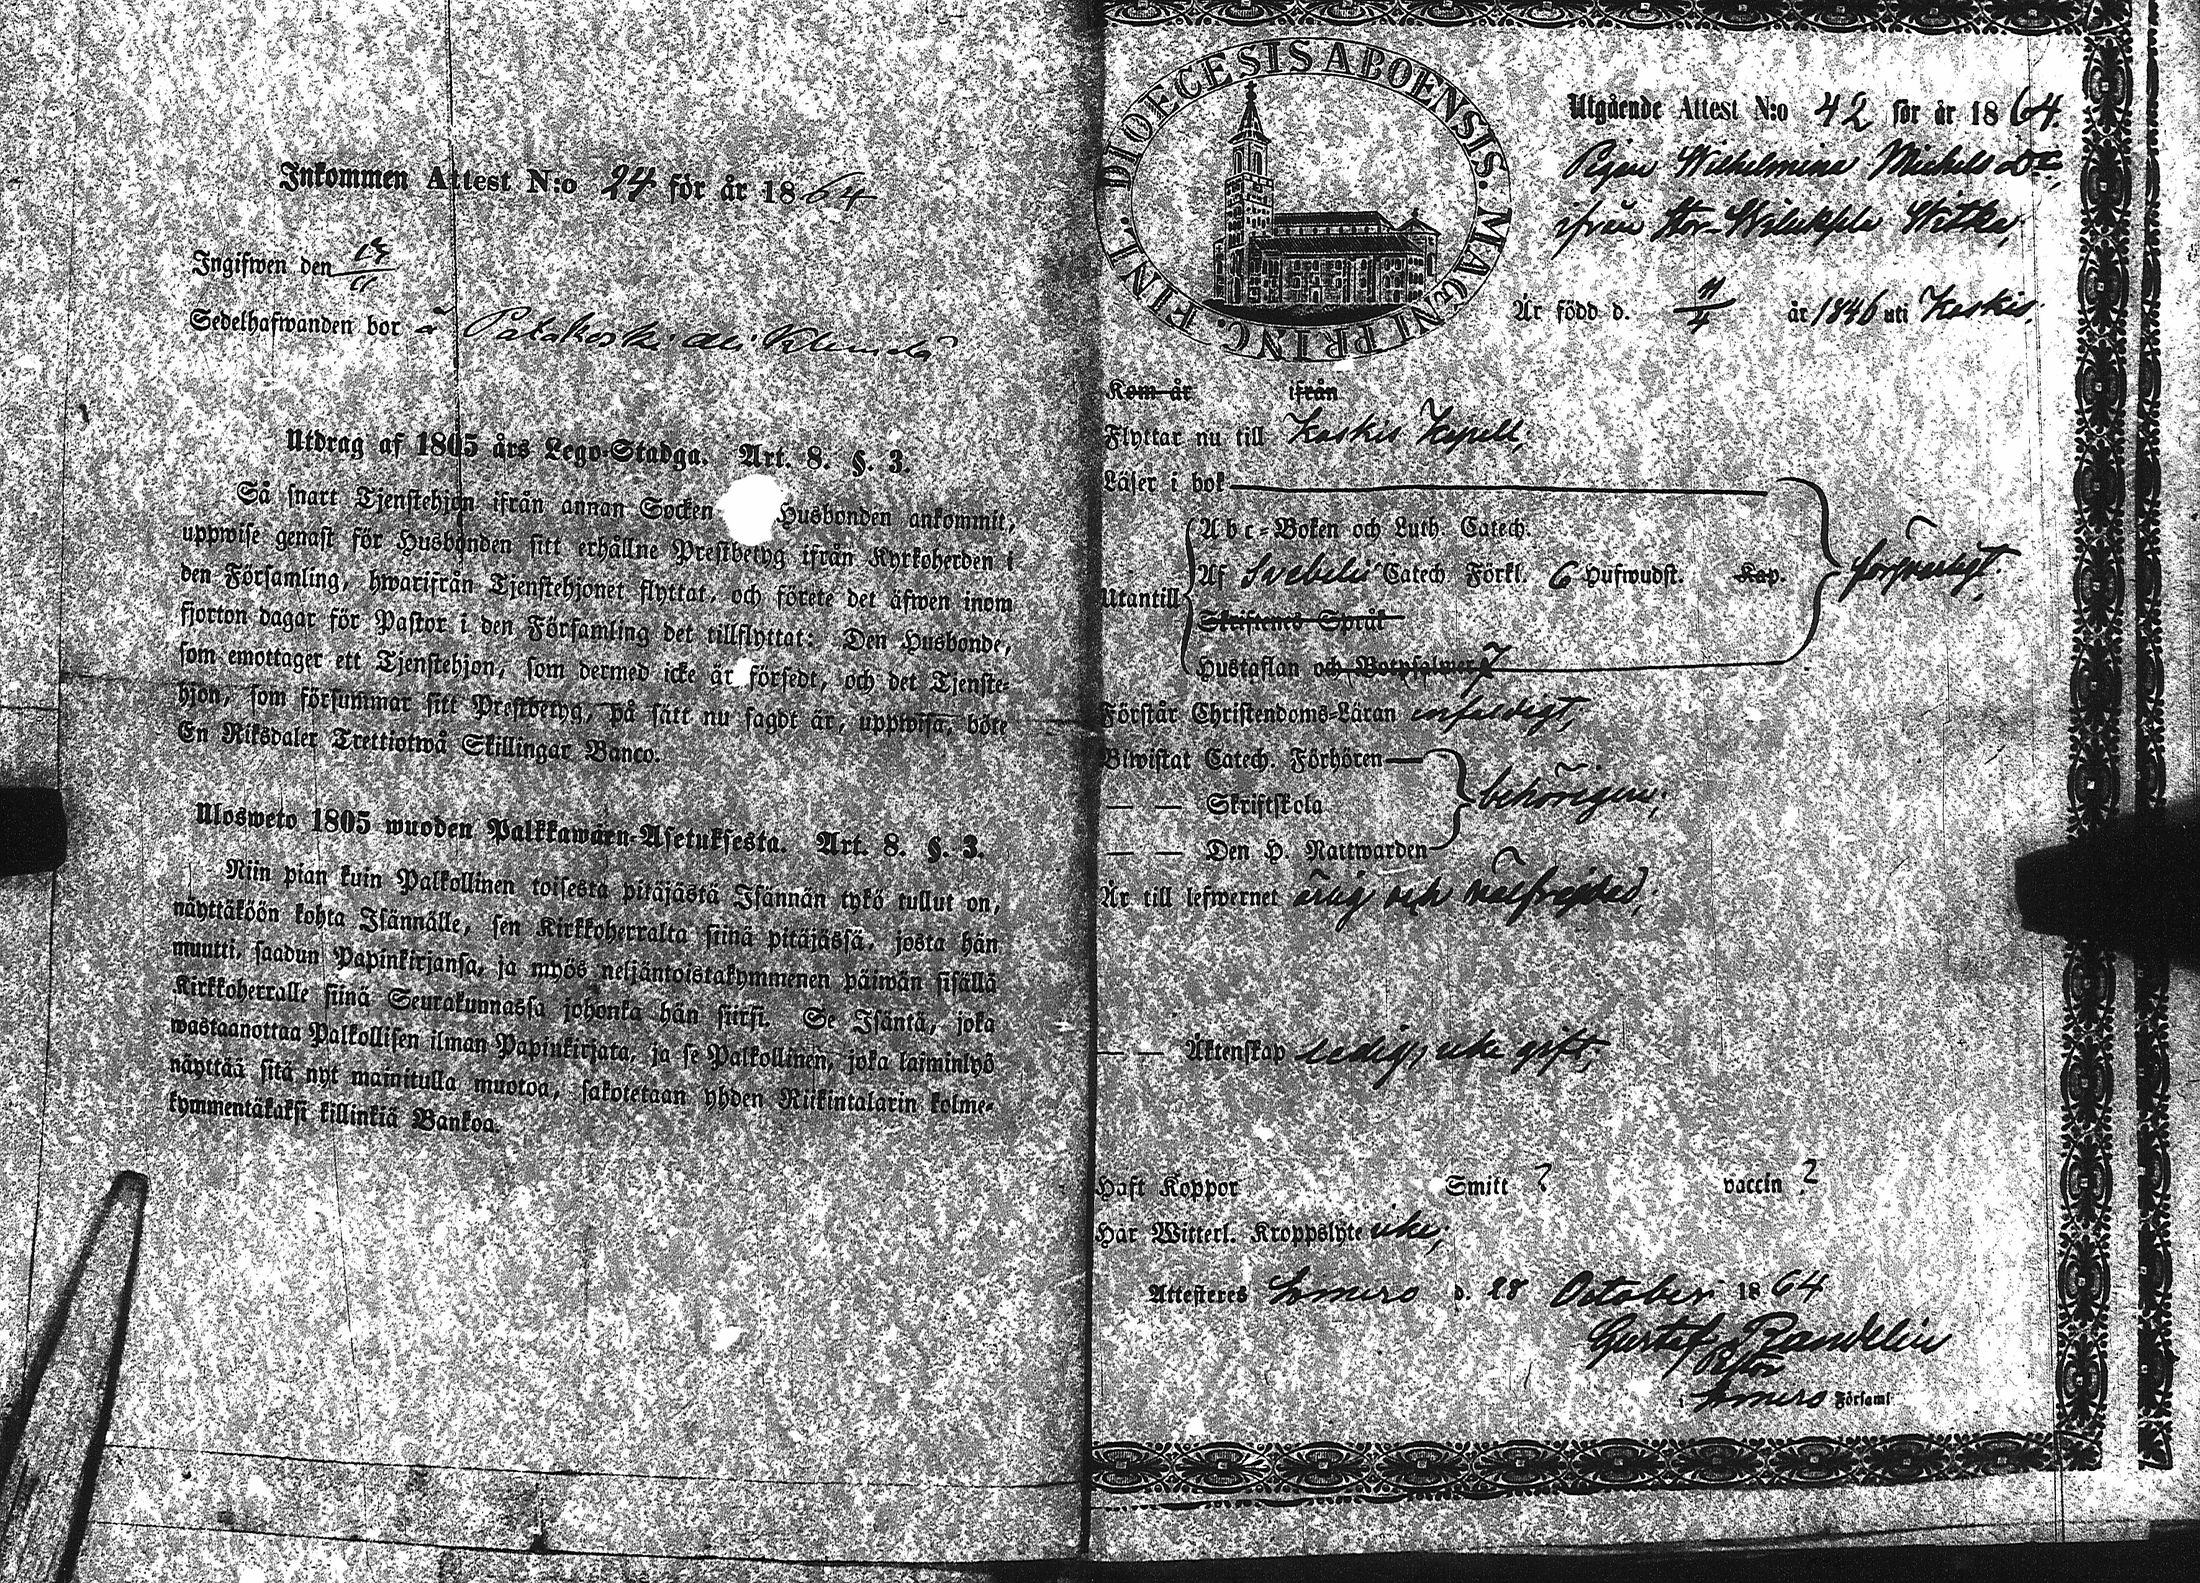 Inkommen Attest N:o 24 för år 1864
Ingifwen den 13/11
Sedelhafwanden bor å Palakoski
Utdrag af 1805 års Lego-Stadga. Art. 8. §. 3.
Så snart Tjenstehjon ifrån annan Socken Husbonden ankommit,
uppwise genast för Husbonden sitt erhållne Prestbetyg ifrån Kyrkoherden i
den Församling, hwarifrån Tjenstehjonet flyttat, och förete det äfwen inom
fjorton dagar för Pastor i den Församling det tillflyttat: Den Husbonde,
som emottager ett Tjenstehjon, som dermed icke är försedt, och det Tjenste-
hjon, som försummar sitt Prestbetyg, på sätt nu sagdt är, uppwisa, böte
En Riksdaler Trettiotwå Skillingar Banco.
Ulosweto 1805 wuoden Palkkawäen-Asetuksesta. Art. 8. §. 3.
Niin pian kuin Palkollinen toisesta pitäjästä Isännän tykö tullut on,
näyttäköön kohta Isännälle, sen Kirkkoherralta siinä pitäjässä, josta hän
muutti, saadun Papinkirjansa, ja myös neljäntoistakymmenen päiwän sisällä
Kirkkoherralle siinä Seurakunnassa johonka hän siirsi. Se Isäntä, joka
wastaanottaa Palkollisen ilman Papinkirjata, ja se Palkollinen, joka laiminlyö
näyttää sitä nyt mainitulla muotoa, sakotetaan yhden Riikintalarin kolme-
kymmentäkaksi killinkiä Bankoa.
DIOECESIS ABOENSIS. MAGNI PRINC. FINL.
Utgående Attest N:o 42 för år 1864.
Pigan Wilhelmina Michels Dr,
ifrån Stor-Wiluksela Witka;
Är född d. 11/4 år 1846 uti Koskis;
Kom år ifrån
Flyttar nu till Koskis Kapell;
Läser i bok
Abc-Boken och Luth. Catech.
Utantill Af Svebelii Catech. Förkl. 6 Hufwudst. Kap. försvarligt;
Skriftenes Språk
Hustaflan och Botpsalmer
Förstår Christendoms-Läran enfaldigt;
Biwistat Catech. Förhören
— — Skriftskola behörigen;
— — Den H. Nattwarden
Är till lefwernet ärlig och välfrejdad;
— — Äktenskap ledig, icke gift;
Haft Koppor Smitt ? vaccin ?
Har Witterl. Kroppslyte icke;
Attesteres Somero d. 28 October 1864
Gustaf Rancklin
Pstor
i Somero Församl